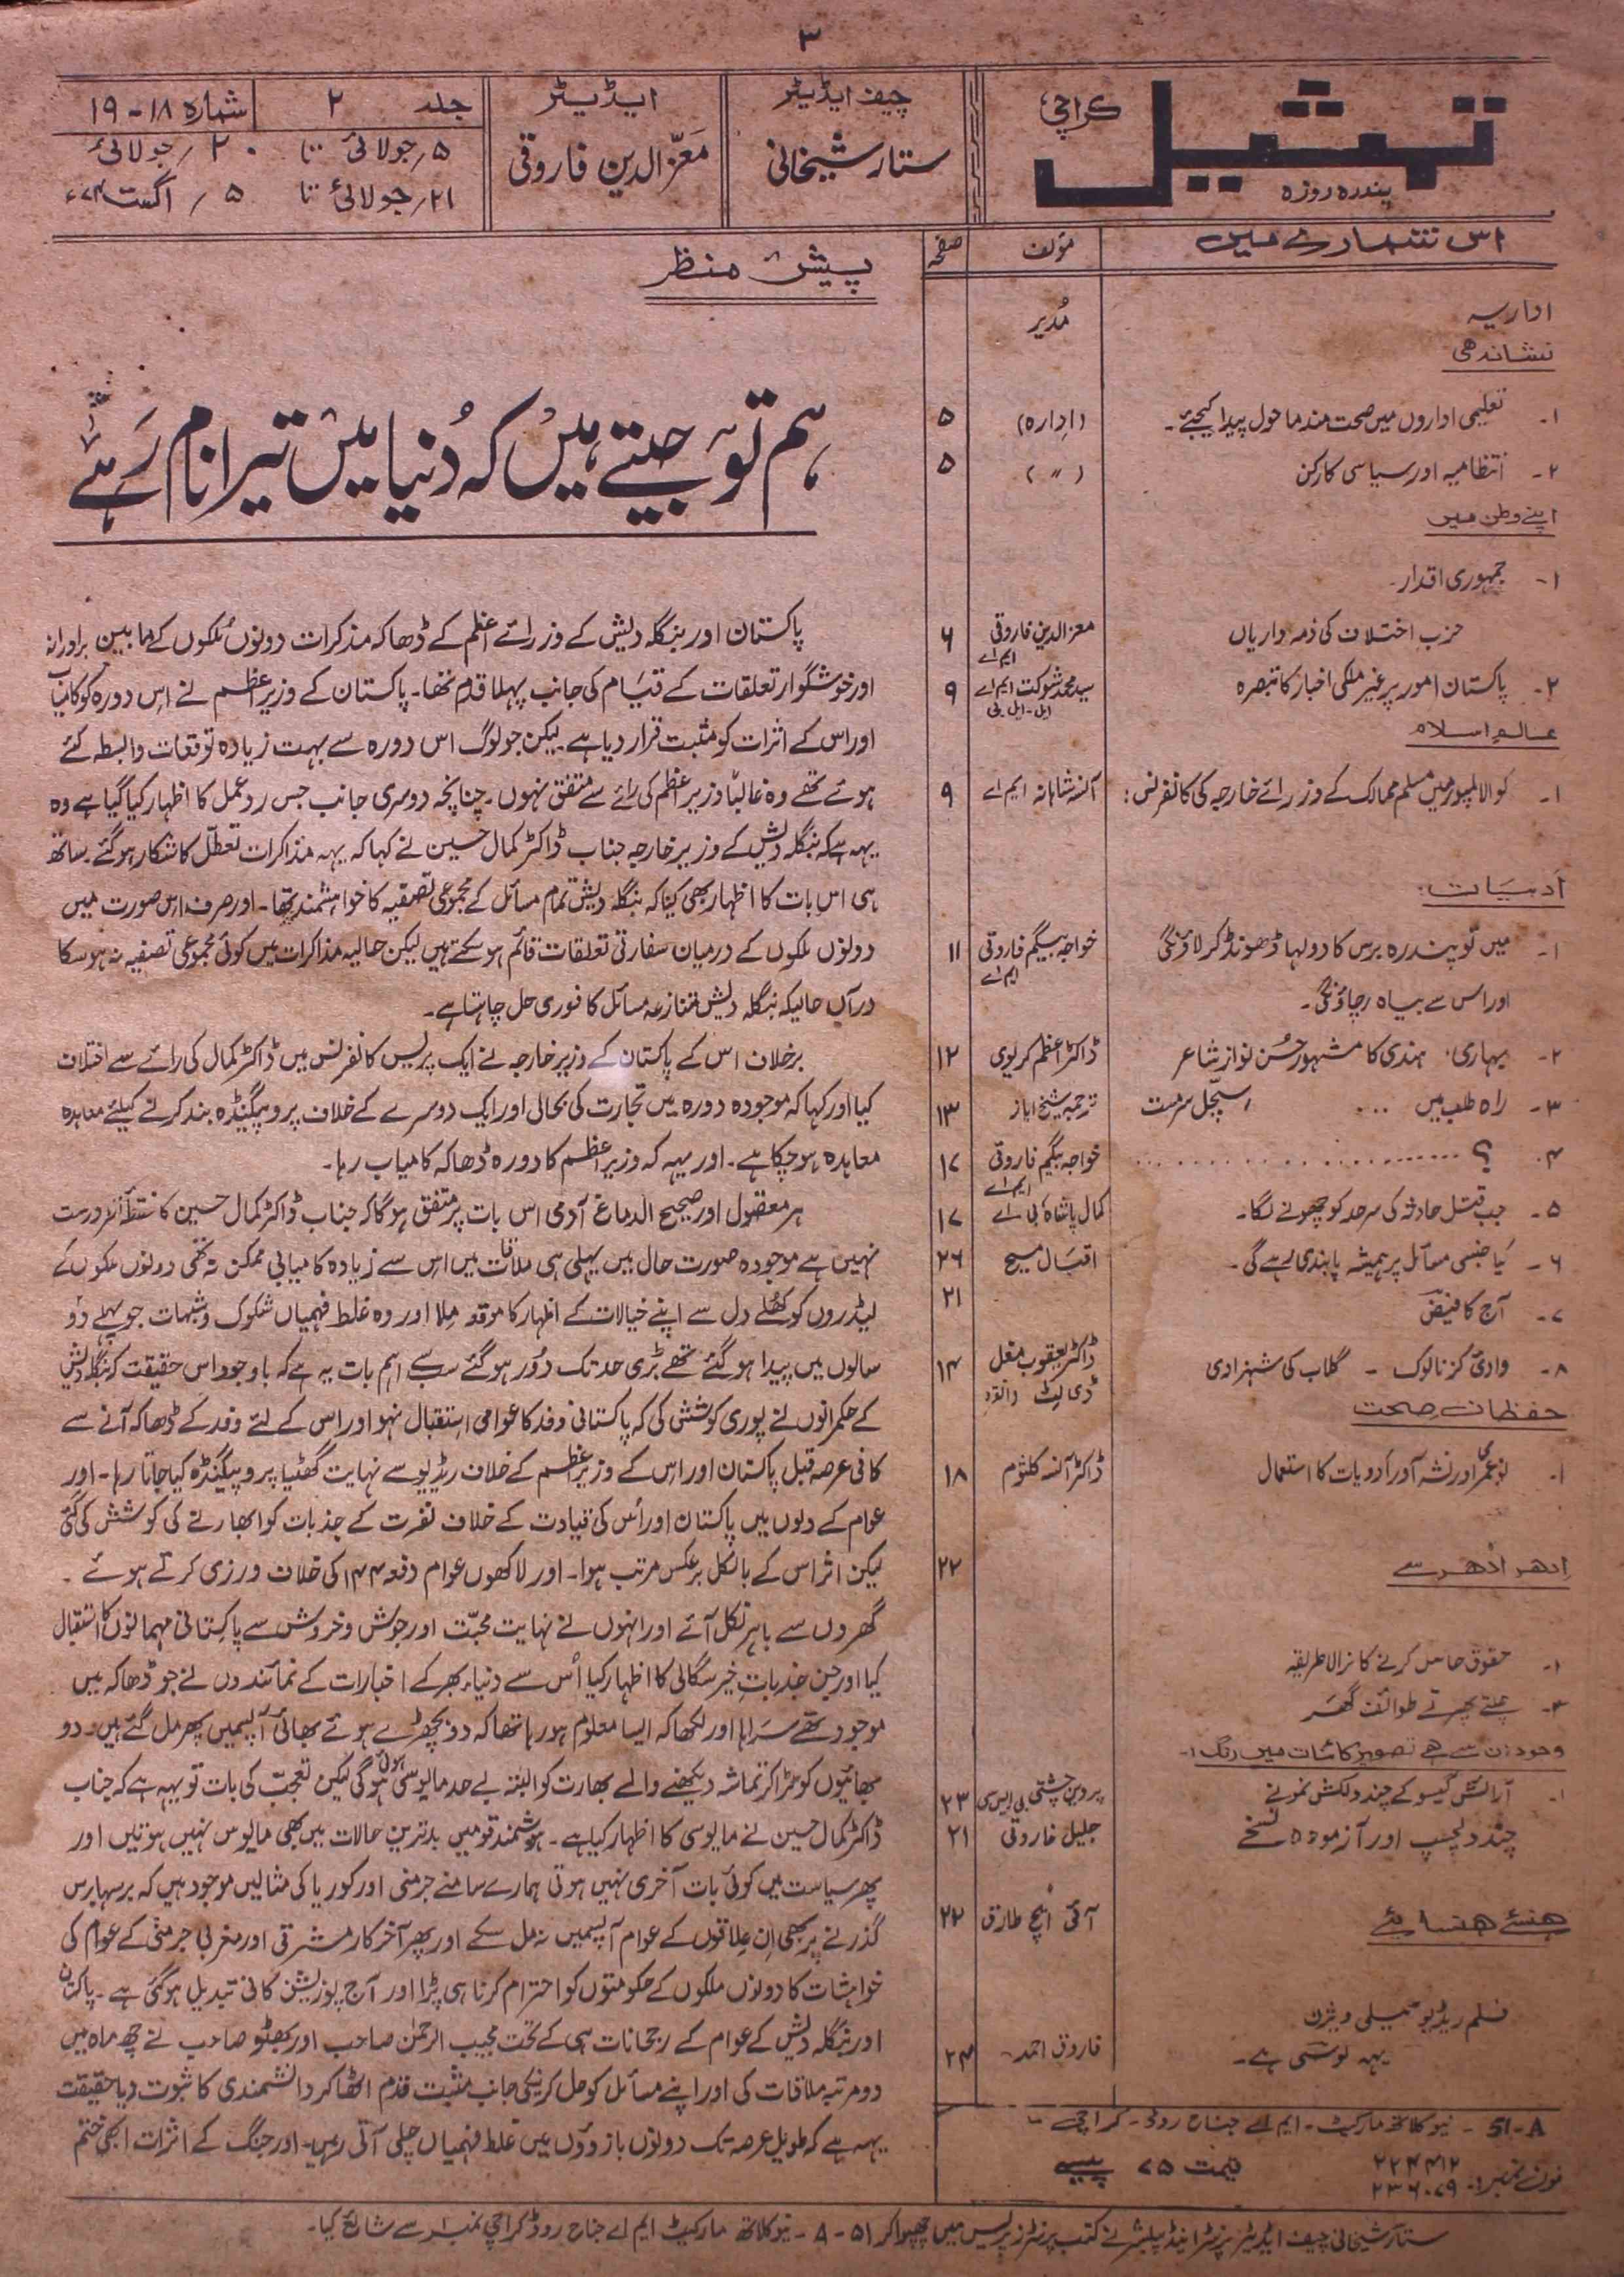 ۳
تمثیل
کراچی
پندرہ روزہ
چیف ایڈیٹر
ستار شیخانی
ایڈیٹر
معزّالدین فاروقی
جلد ۲
شمارہ ۱۸-۱۹
۵؍جولائی تا ۲۰؍جولائی
۲۱؍جولائی تا ۵؍اگست ۷۴ء
اس شمارے میں مؤلف صفحہ
اداریہ مُدیر
نشاندھی
۱- تعلیمی اداروں میں صحت مند ماحول پیدا کیجئے۔ (ادارہ) ۵
۲- انتظامیہ اور سیاسی کارکن ( ″ ) ۵
اپنے وطن میں
۱- جمہوری اقدار۔
حزب اختلاف کی ذمہ داریاں معزالدین فاروقی ایم اے ۶
۲- پاکستان امور پر غیر ملکی اخبار کا تبصرہ سید محمد شوکت ایم اے ایل-ایل بی ۹
عالمِ اسلام
۱- کوالالمپور میں مسلم ممالک کے وزرائے خارجہ کی کانفرنس: آنسہ شاہانہ ایم اے ۹
اَدبیَات:
۱- میں تو پندرہ برس کا دولہا ڈھونڈ کر لاؤنگی خواجہ بیگم فاروقی ایم اے ۱۱
اور اس سے بیاہ رچاؤنگی۔
۲- بہاری، ہندی کا مشہور حُسن نواز شاعر ڈاکٹر اعظم کریوی ۱۲
۳- راہ طلب میں ... سچّل سرمست ترجمہ شیخ ایاز ۱۳
۴- ؟ .................. خواجہ بیگم فاروقی ایم اے ۱۷
۵- جب قتل حادثہ کی سرحد کو چھونے لگا۔ کمال پاشاہ بی اے ۱۷
۶- کیا جنسی مسائل پر ہمیشہ پابندی رہے گی۔ اقبال مسیح ۲۶
۷- آج کا فیض ۲۱
۸- وادئ گزنالوک - گلاب کی شہزادی ڈاکٹر یعقوب مغل ڈی لیٹ ۱۴
حفظانِ صحت
۱- نو عمری اور نشہ آور اَدویات کا استعمال ڈاکٹر آنسہ کلثوم ۱۸
اِدھر اُدھر سے ۲۲
۱- حقوق حاصل کرنے کا نرالا طریقہ
۲- چلتے پھرتے طوائف گھَر
وجودِ زن سے ہے تصویرِ کائنات میں رنگ:-
۱- آرائش گیسو کے چند دلکش نمونے پروین چشتی بی ایس سی ۲۳
چند دلچسپ اور آزمودہ نسخے جلیل فاروقی ۲۱
ھنسئے ھنسائیے آئی ایچ طارق ۲۲
فلم ریڈیو ٹیلی ویژن
یہہ نوشی ہے۔ فاروق احمد ۲۴
51-A - نیو کلاتھ مارکیٹ - ایم اے جناح روڈ - کراچی -
فون نمبر: ۲۲۴۴۱۲ قیمت ۷۵ پیسے
۲۳۶۰۷۹
پیش منظر
ہم تو جیتے ہیں کہ دُنیا میں تیرا نام رَہے
پاکستان اور بنگلہ دیش کے وزرائے اعظم کے ڈھاکہ مذکرات دونوں مُلکوں کے مابین برادرانہ
اور خوشگوار تعلقات کے قیَام کی جانب پہلا قدم تھا۔ پاکستان کے وزیراعظم نے اس دورہ کو کامیاب
اور اس کے اثرات کو مثبت قرار دیا ہے۔ لیکن جو لوگ اس دورہ سے بہت زیادہ توقعات وابستہ کئے
ہوئے تھے وہ غالباً وزیراعظم کی رائے سے متفق نہوں۔ چنانچہ دوسری جانب جس ردعمل کا اظہار کیا گیا ہے وہ
یہہ ہے کہ بنگلہ دیش کے وزیر خارجہ جناب ڈاکٹر کمال حسین نے کہا کہ یہہ مذاکرات تعطّل کا شکار ہو گئے۔ ساتھ
ہی اس بات کا اظہار بھی کیا کہ بنگلہ دیش تمام مسائل کے مجموعی تصفیہ کا خواہشمند تھا۔ اور صرف اس صورت میں
دونوں ملکوں کے درمیان سفارتی تعلقات قائم ہو سکتے ہیں لیکن حالیہ مذاکرات میں کوئی مجموعی تصفیہ نہ ہو سکا
درآں حالیکہ بنگلہ دیش متنازعہ مسائل کا فوری حل چاہتا ہے۔
برخلاف اس کے پاکستان کے وزیر خارجہ نے ایک پریس کانفرنس میں ڈاکٹر کمال کی رائے سے اختلاف
کیا اور کہا کہ موجودہ دورہ میں تجارت کی بحالی اور ایک دوسرے کے خلاف پروپیگنڈہ بند کرنے کیلئے معاہدہ
معاہدہ ہو چکا ہے۔ اور یہہ کہ وزیراعظم کا دورہ ڈھاکہ کامیاب رہا۔
ہر معقول اور صحیح الدماغ آدمی اس بات پر متفق ہوگا کہ جناب ڈاکٹر کمال حسین کا نقطۂ نظر درست
نہیں ہے موجودہ صورت حال میں پہلی ہی ملاقات میں اس سے زیادہ کامیابی ممکن نہ تھی دونوں ملکوں کے
لیڈروں کو کھُلے دل سے اپنے خیالات کے اظہار کا موقعہ مِلا اور وہ غلط فہمیاں شکوک و شبہات جو پہلے دو
سالوں میں پیدا ہو گئے تھے بڑی حد تک دُور ہو گئے سب سے اہم بات یہ ہے کہ باوجود اس حقیقت کہ بنگلہ دیش
کے حکمرانوں نے پوری کوشش کی کہ پاکستانی وفد کا عوامی استقبال نہو اور اس کے لئے وفد کے ڈھاکہ آنے سے
کافی عرصہ قبل پاکستان اور اس کے وزیراعظم کے خلاف ریڈیو سے نہایت گھٹیا پروپیگنڈہ کیا جاتا رہا۔ اور
عوام کے دلوں میں پاکستان اور اُس کی قیادت کے خلاف نفرت کے جذبات کو ابھارنے کی کوشش کی گئی
لیکن اثر اس کے بالکل برعکس مرتب ہوا۔ اور لاکھوں عوام دفعہ ۱۴۴ کی خلاف ورزی کرتے ہوئے ۔
گھروں سے باہر نکل آئے اور انہوں نے نہایت محبّت اور جوش و خروش سے پاکستانی مہمانوں کا استقبال
کیا اور جن جذبات خیر سگالی کا اظہار کیا اُس سے دنیاء بھر کے اخبارات کے نمائندوں نے جو ڈھاکہ میں
موجود تھے سَراہا اور لکھا کہ ایسا معلوم ہو رہا تھا کہ دو بچھڑے ہوئے بھائی آپسمیں پھر مل گئے ہیں۔ دو
بھائیوں کو لڑا کر تماشہ دیکھنے والے بھارت کو البتہ بے حد مایوسی ہوئی ہوگی لیکن تعجّب کی بات تو یہہ ہے کہ جناب
ڈاکٹر کمال حسین نے مایوسی کا اظہار کیا ہے۔ ہوشمند قومیں بدترین حالات میں بھی مایوس نہیں ہوتیں اور
پھر سیاست میں کوئی بات آخری نہیں ہوتی ہمارے سامنے جرمنی اور کوریا کی مثالیں موجود ہیں کہ برسہا برس
گذرنے پر بھی اِن علاقوں کے عوام آپسمیں نہ مل سکے اور پھر آخر کار مشرقی اور مغربی جرمنی کے عوام کی
خواہشات کا دونوں ملکوں کے حکومتوں کو احترام کرنا ہی پڑا اور آج پوزیشن کافی تبدیل ہو گئی ہے۔ پاکستان
اور بنگلہ دیش کے عوام کے رجحانات ہی کے تحت مجیب الرحمٰن صاحب اور بھٹو صاحب نے چھ ماہ میں
دو مرتبہ ملاقات کی اور اپنے مسائل کو حل کرنیکی جانب مثبت قدم اٹھا کر دانشمندی کا ثبوت دیا حقیقت
یہہ ہے کہ طویل عرصہ تک دونوں بازوؤں میں غلط فہمیاں چلی آتی رہیں۔ اور جنگ کے اثرات ابھی ختم
ستار شیخانی چیف ایڈیٹر پرنٹر اینڈ پبلیشر نے کتب پرنٹرز پریس میں چھپوا کر ۵۱-A - نیو کلاتھ مارکیٹ ایم اے جناح روڈ کراچی نمبر۱ سے شائع کیا۔